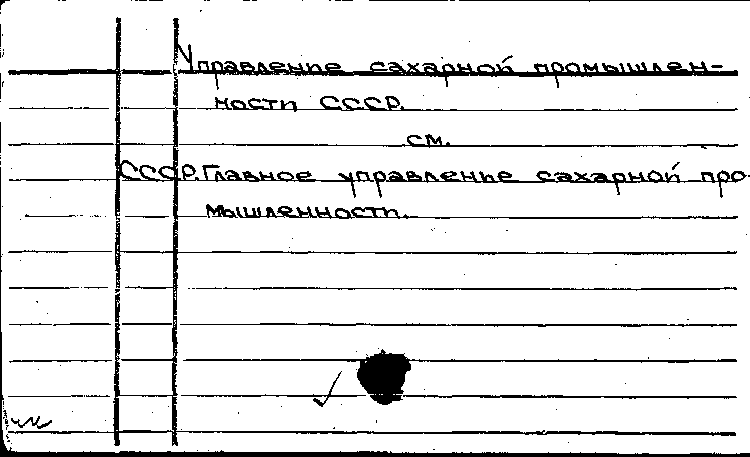 Управление сахарной промышлен-
ности СССР.
см.
СССР. Главное управление сахарной про-
мышленности.